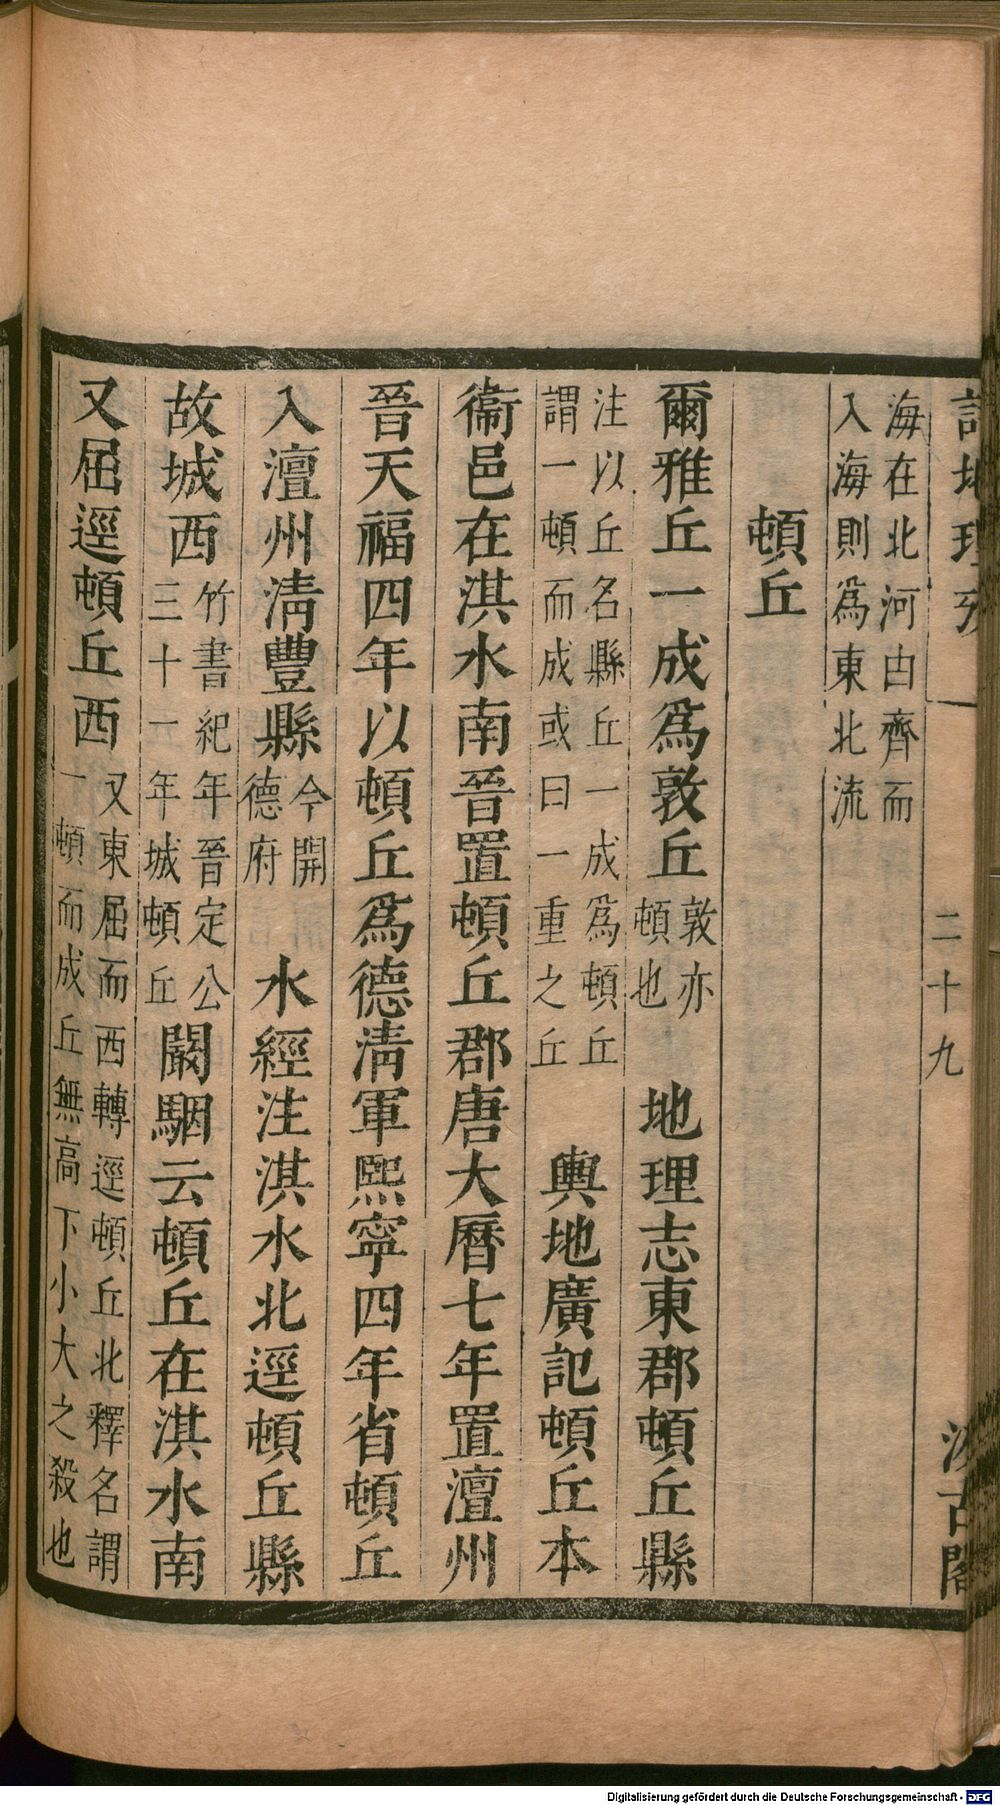 詩地理攷 一 二十九 汲古閣
海在北河由齊而
入海則爲東北流
頓丘
爾雅丘一成爲敦丘敦亦頓也 地理志東郡頓丘縣
注以丘名縣丘一成爲頓丘
謂一頓而成或曰一重之丘 輿地廣記頓丘本
衞邑在淇水南晉置頓丘郡唐大曆七年置澶州
晉天福四年以頓丘爲德清軍熙寧四年省頓丘
入澶州淸豐縣今開德府 水經注淇水北逕頓丘縣
故城西竹書紀年晉定公三十一年城頓丘闞駰云頓丘在淇水南
又屈逕頓丘西又東屈而西轉逕頓丘北釋名謂一頓而成丘無高下小大之殺也
Digitalisierung gefördert durch die Deutsche Forschungsgemeinschaft - DFG